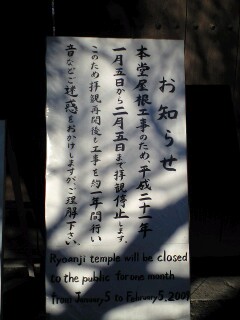 お知らせ
本堂屋根工事のため、平成二十一年
一月五日から二月五日まで拝観停止します。
このため拝観再開後も工事を約一年間行い
音などご迷惑をおかけしますが、ご理解下さい。
Ryoanji temple will be closed
to the public for one month
from January 5 to February 5, 2009